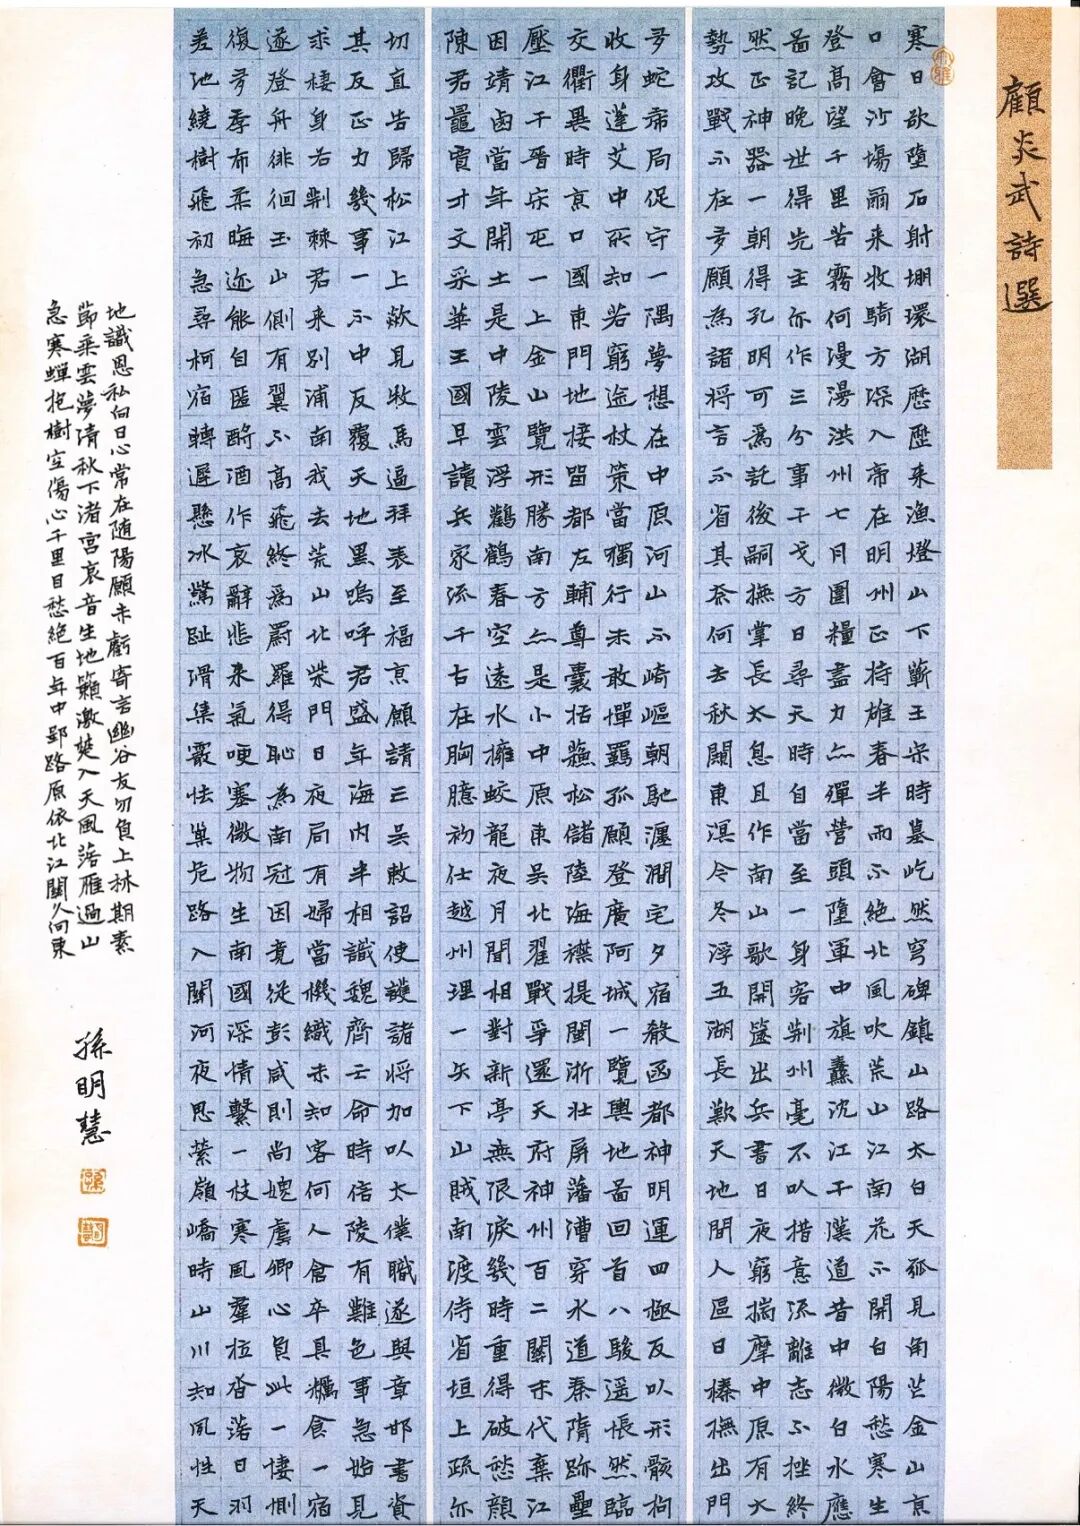 顧炎武詩選
寒日欲墮石射堋環湖歷歷來漁燈山下蘄王宋時墓屹然穹碑鎮山路太白天弧見角芒金山京
口會沙場爾來牧騎方深入帝在明州正持雄春半雨不絕北風吹荒山江南花不開白陽愁寒生
登高望千里苦霧何漫漫洪州七月圍糧盡力亦殫營頭墮軍中旗纛沈江干漢道昔中微白水應
圖記晚世得先主亦作三分事干戈方日尋天時自當至一身客荊州毫不以措意流離志不挫終
然正神器一朝得孔明可為託後嗣撫掌長太息且作南山歌開篋出兵書日夜窮揣摩中原有大
勢攻戰不在多願為諸將言不省其奈何去秋闚東溟今冬浮五湖長歎天地間人區日榛蕪出門
多蛇虎局促守一隅夢想在中原河山不崎嶇朝馳瀍澗宅夕宿殽函都神明運四極反以形骸拘
收身蓬艾中所知若窮途杖策當獨行未敢憚羈孤願登廣阿城一覽輿地圖回首八駿遙悵然臨
交衢異時京口國東門地接留都左輔尊囊括蘇松儲陸海襟提閩浙壯屏藩漕穿水道秦隋跡壘
壓江干晉宋屯一上金山覽形勝南方亦是小中原東吳北翟戰爭還天府神州百二關末代棄江
因靖鹵當年開土是中陵雲浮鸛鶴春空遠水擁蛟龍夜月閒相對新亭無限淚幾時重得破愁顏
陳君鼂賈才文采華王國早讀兵家流千古在胸臆初仕越州理一矢下山賊南渡侍省垣上疏亦
切直告歸松江上歘見牧馬逼拜表至福京願請三吳敕詔使護諸將加以太僕職遂與章邯書資
其反正力幾事一不中反覆天地黑嗚呼君盛年海內半相識魏齊亡命時信陵有難色事急始見
求棲身右荊棘君來別浦南我去荒山北柴門日夜局有婦當機織未知客何人倉卒具糲食一宿
遂登舟徘徊玉山側有翼不高飛終為罻羅得恥為南冠因竟從彭咸則尚媿虞卿心負此一悽惻
復多季布柔晦迹能自匿酹酒作哀辭悲來氣哽塞微物生南國深情繫一枝寒風羣拉沓落日羽
差池繞樹飛初急尋柯宿轉遲懸冰驚趾滑集霰怯巢危路入關河夜思縈嶺嶠時山川知夙性天
地識恩私向日心常在隨陽願未虧寄言幽谷友勿負上林期素
節乘雲夢清秋下渚宮哀音生地籟激楚入天風落雁過山
急寒蟬抱樹空傷心千里目愁絕百年中郢路原依北江關久向東
孫明慧